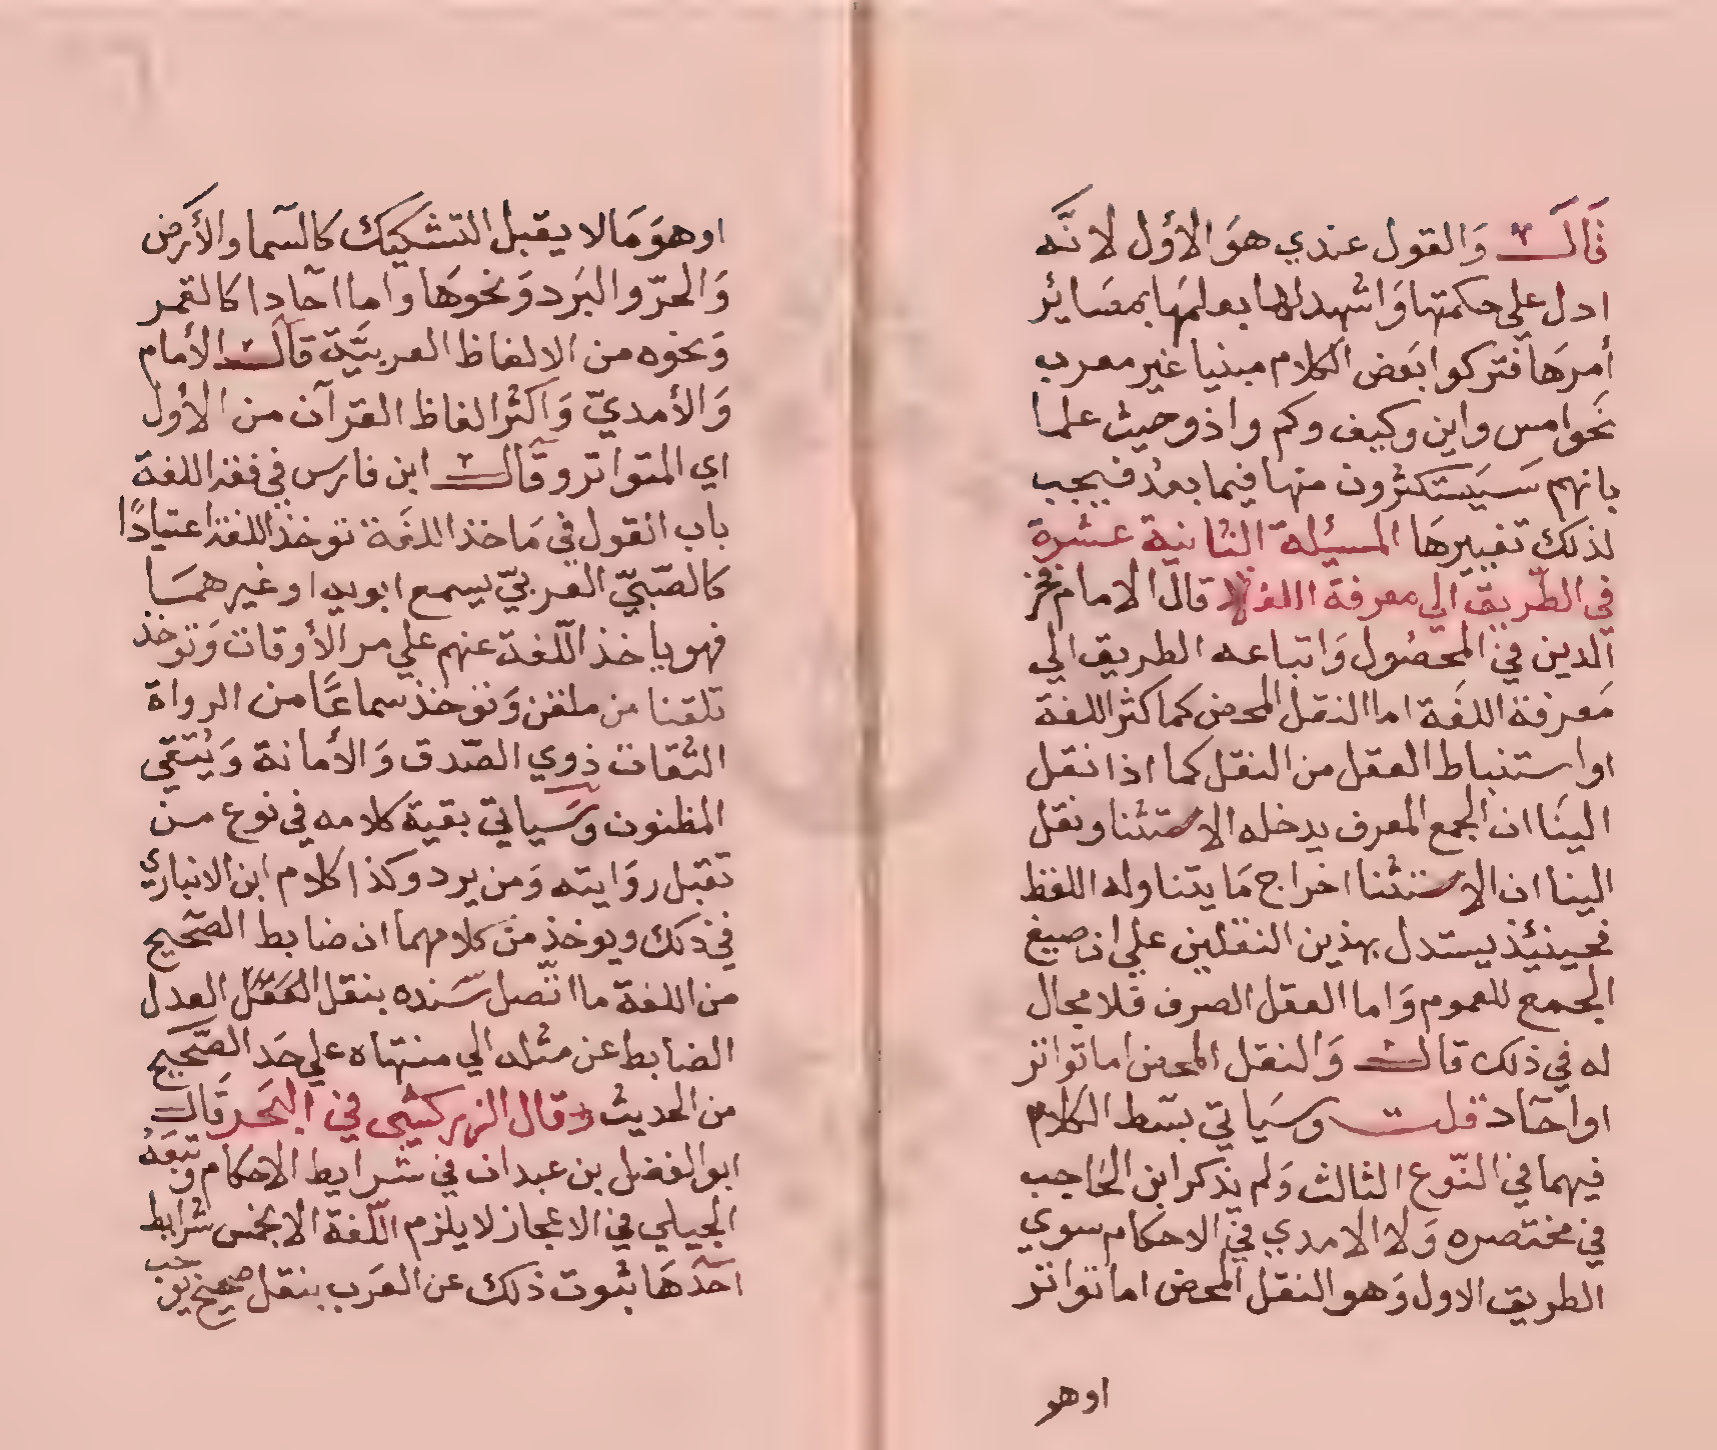 قَالَ وَالقول عندي هوَ الأول لانَّه
ادل علي حكمتها وَاشهد لها بعلمهَا بمصَائر
أمرهَا فتركوا بعَض الكلام مبنيا غير معرب
نحَوامس واين وكيف وكم واذ وحيث علما
بانهم سَيَستكثرون منها فيما بعدُ فيجب
لذلك تغييرهَا المسئلة الثانية عشرة
في الطّريق الي معرفة اللغة قال الامام فخر
الدين في المحصُول وَاتباعه الطريق الي
مَعرفة اللغَة اما النقل المحض كما كثر اللغة
او استنباط العقل من النقل كما اذا نقل
الينَا ان الجمع المعرف يدخله الاستثنا ونقل
الينا ان الاستثنا اخراج مَا يتناوله اللفظ
فحينئذ يستدل بهذين النقلين علي ان صيغ
الجمع للعموم وَاما العقل الصرف فلا مجال
له في ذلك قال وَالنقل المحض اما تواتر
او احآد قلت وسيَاتي بسَط الكلام
فيهما في النّوع الثالث وَلم يذكر ابن الحَاجب
في مختصره وَلا الامدي في الاحكام سوي
الطريق الاول وَهو النقل المحض اما تواتر
اوهو
اوهوَ مَالا يقبل التشكيك كالسَّما والأَرض
وَالحرّ والبَرد وَنحوهَا واما احآدا كالقمر
وَنحوه من الالفاظ العربيَّة قال الأمام
وَالأمديّ وَاكثر الفاظ القرآن من الأول
اي المتواتر وقَال ابن فارس في فقه اللغة
باب القول في مَاخذ اللغَة توخذ اللغة اعتيادًا
كالصّبيّ العربيّ يسمع ابويه او غيرهمَا
فهو ياخذ اللّغة عنهم علي مر الأوقات وَتوخذ
تلقنا من ملقن وَتوخذ سماعًا من الرواة
الثقات ذوي الصّدق وَالأمانة وَيُتقي
المظنون وسَياتي بقية كلامه في نوع من
تقبل روَايته وَمن يرد وكذا كلام ابن الانباري
في ذلك ويوخذ من كلامهما ان ضابط الصّحيح
من اللغة ما اتّصل سَنده بنقل العدل
الضابط عن مثله الي منتهاه علي حَد الصّحيح
من الحديث وقال الزركشي في البحَر قَال
ابو الفضل بن عبدان في شرايط الاحكام وتبعَهُ
الجيلي في الاعجاز لا يلزم اللّغة الا بخمس شرايط
احَدهَا ثبوت ذلك عن العَرب بنقل صحيح يوجب